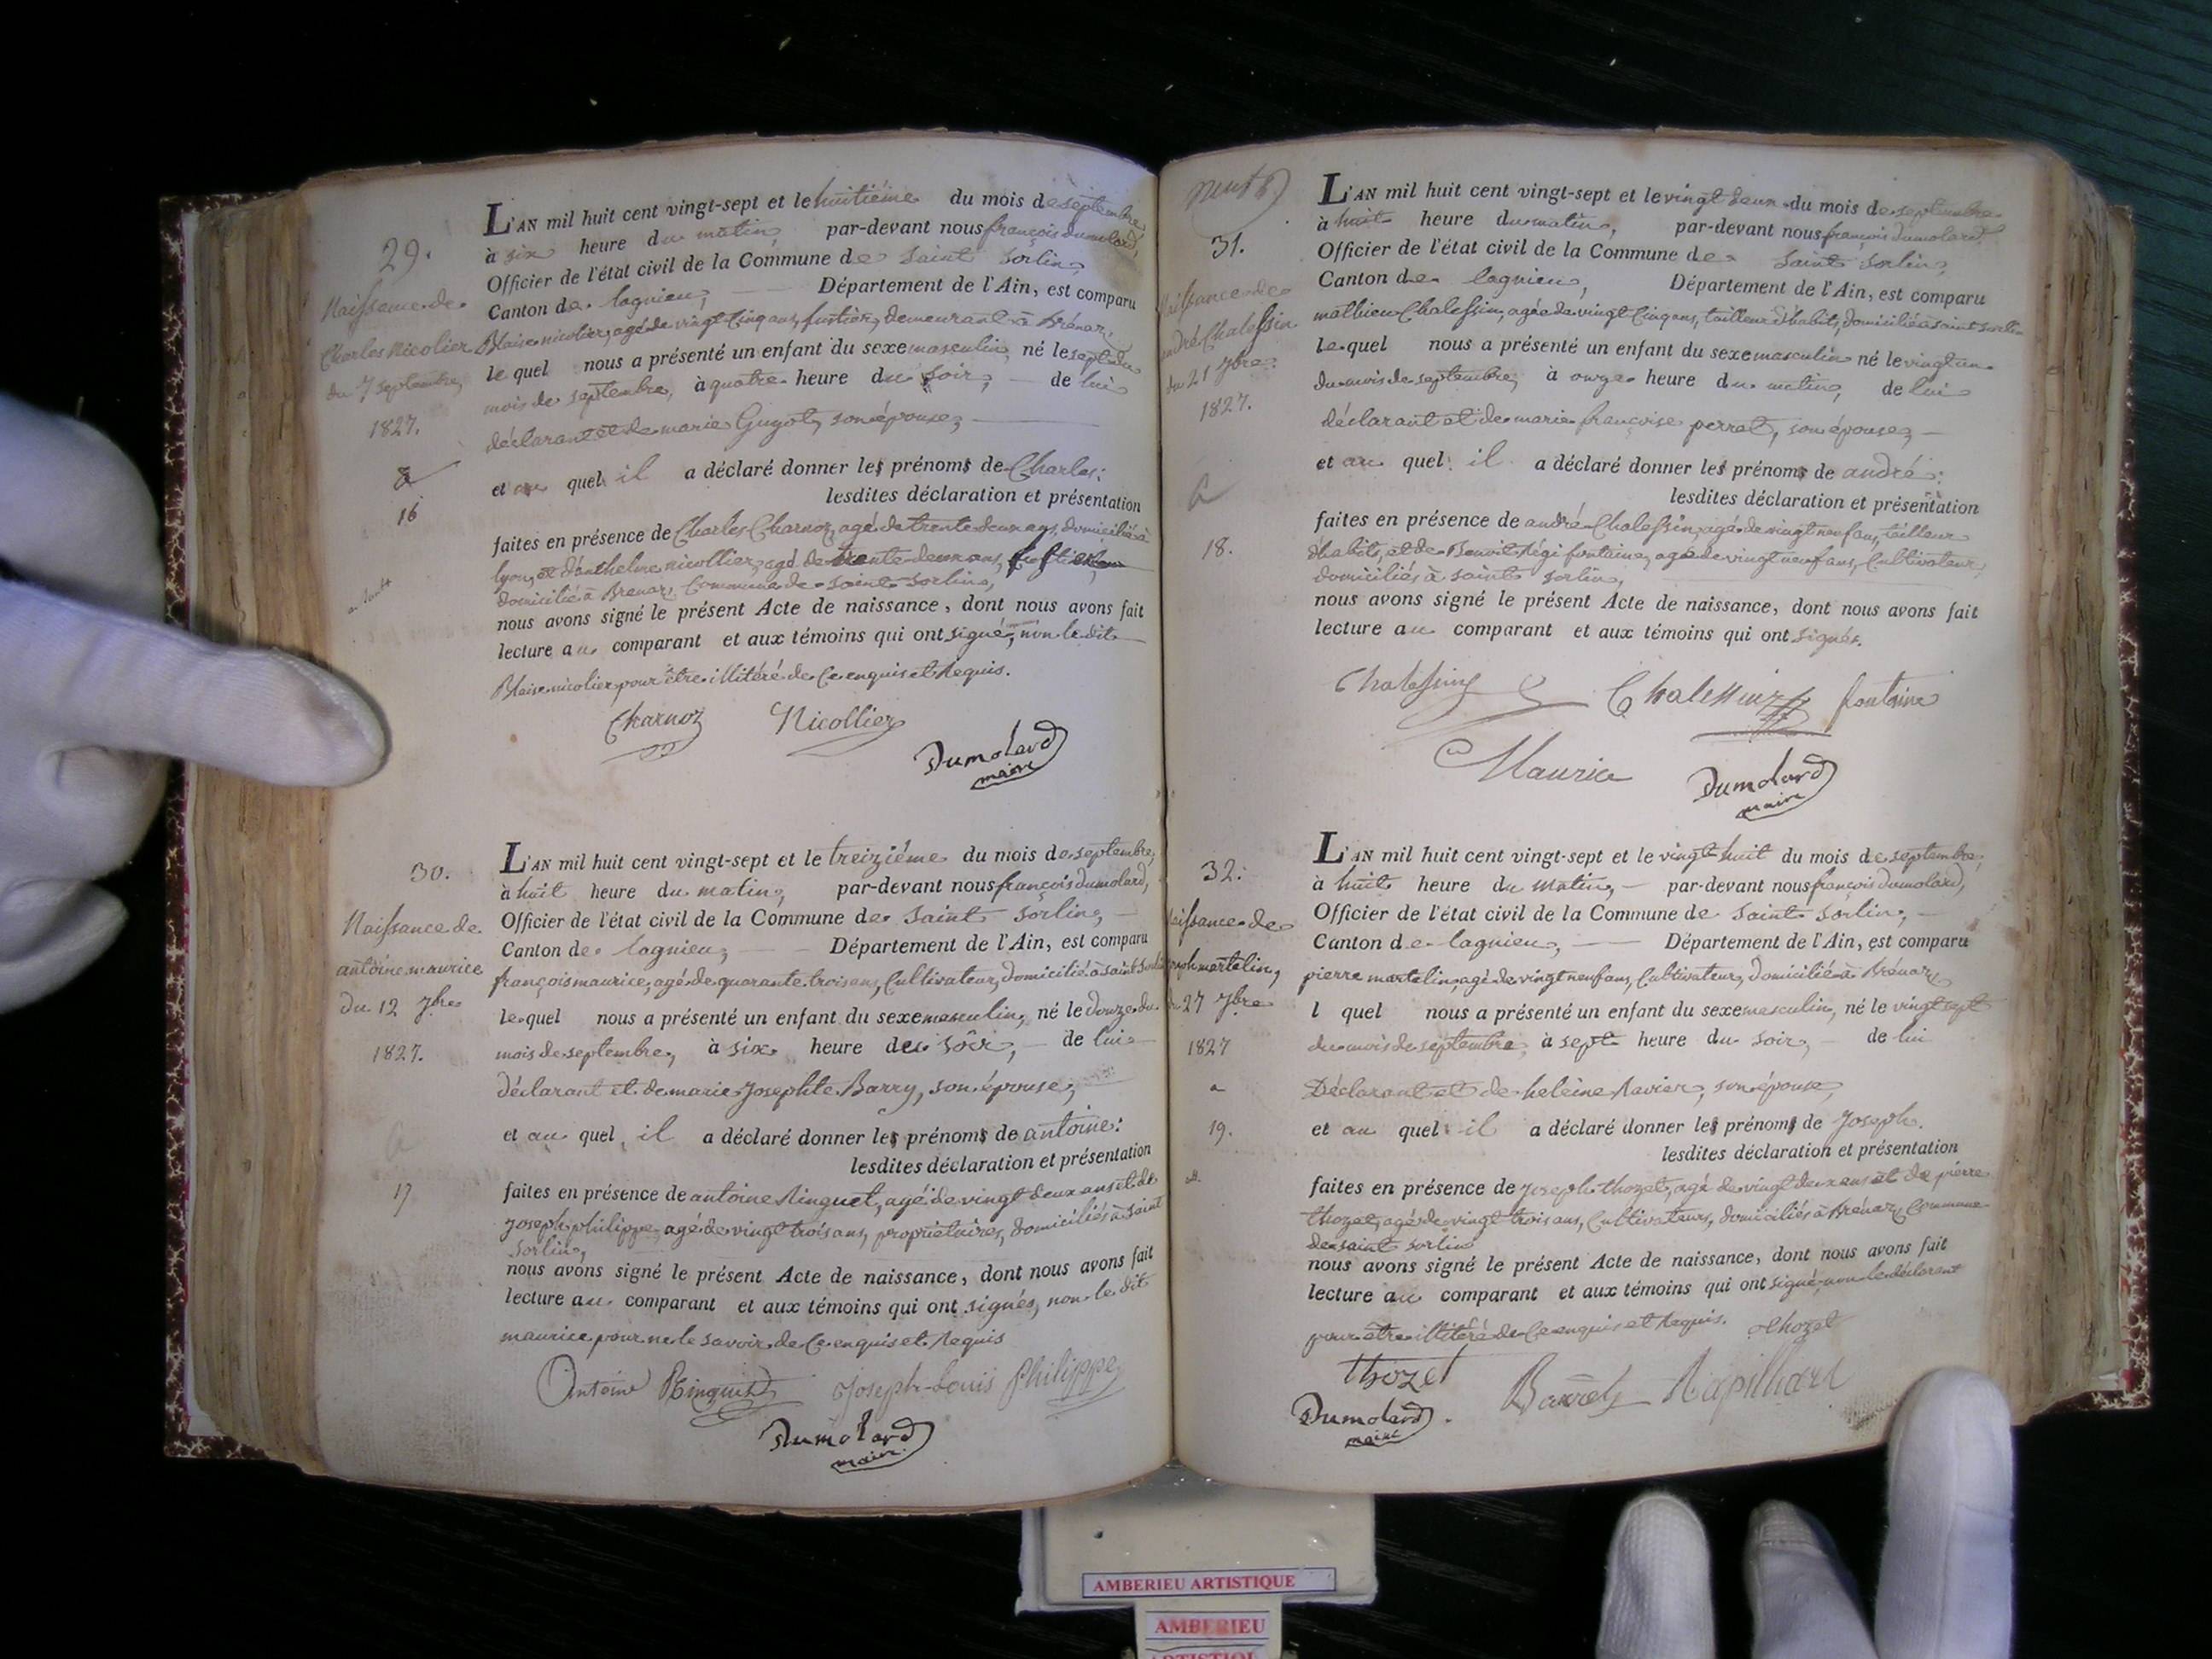 29.
Naissance de
Charles Nicolier
du 7 septembre,
1827.
16
L'AN mil huit cent vingt-sept et le huitiéme du mois de septembre,
à six heure du matin, par-devant nous françois dumolard,
Officier de l'état civil de la Commune de Saint Sorlin,
Canton de lagnieu, Département de l'Ain, est comparu
Blaise nicolier, agé de vingt Cinq ans, fustier, demeurant à Brénaz,
le quel nous a présenté un enfant du sexe masculin, né le sept du
mois de septembre, à quatre heure du soir, de lui
déclarant et de marie Guyot, son épouse,
et au quel il a déclaré donner les prénoms de Charles:
lesdites déclaration et présentation
faites en présence de Charles Charnoz, agé de trente deux ans, domicilié à
lyon, et d'anthelme nicollier, agé de trente deux ans,
domicilié à Brénaz, Commune de Saint Sorlin,
nous avons signé le présent Acte de naissance, dont nous avons fait
lecture au comparant et aux témoins qui ont signé, non le dit
Blaise nicolier pour être illitéré de Ce enquis et Requis.
Charnoz Nicollier
Dumolard
maire
30.
Naissance de
antoine maurice
du 12 7bre
1827.
17
L'AN mil huit cent vingt-sept et le treiziéme du mois de septembre,
à huit heure du matin, par-devant nous françois dumolard,
Officier de l'état civil de la Commune de Saint Sorlin,
Canton de lagnieu, Département de l'Ain, est comparu
françois maurice, agé de quarante trois ans, Cultivateur, domicilié à saint Sorlin
le quel nous a présenté un enfant du sexe masculin, né le douze du
mois de septembre, à six heure du soir, de lui
déclarant et de marie Josephte Barry, son épouse,
et au quel il a déclaré donner les prénoms de antoine:
lesdites déclaration et présentation
faites en présence de antoine Ringuet, agé de vingt deux ans et de
Joseph philippe, agé de vingt trois ans, propriétaires, domiciliés à Saint
Sorlin,
nous avons signé le présent Acte de naissance, dont nous avons fait
lecture au comparant et aux témoins qui ont signés, non le dit
maurice pour ne le savoir de Ce enquis et Requis
Antoine Ringuet Joseph-Louis Philippe
Dumolard
maire
31.
Naissance de
andré Chalessin
du 21 7bre
1827.
18.
L'AN mil huit cent vingt-sept et le vingt deux du mois de septembre
à huit heure du matin, par-devant nous françois dumolard,
Officier de l'état civil de la Commune de Saint Sorlin,
Canton de lagnieu, Département de l'Ain, est comparu
mathieu Chalessin, agé de vingt Cinq ans, tailleur d'habits, domicilié à saint Sorlin
le quel nous a présenté un enfant du sexe masculin né le vingt un
du mois de septembre, à onze heure du matin, de lui
déclarant et de marie françoise perret, son épouse,
et au quel il a déclaré donner les prénoms de andré:
lesdites déclaration et présentation
faites en présence de andré Chalessin, agé de vingt neuf ans, tailleur
d'habits, et de Benoit Régi fontaine, agé de vingt neuf ans, Cultivateur,
domiciliés à saint Sorlin,
nous avons signé le présent Acte de naissance, dont nous avons fait
lecture au comparant et aux témoins qui ont signés.
Chalessin Chalessin fontaine
Maurice Dumolard
maire
32.
Naissance de
Joseph martelin,
du 27 7bre
1827
a
19.
L'AN mil huit cent vingt-sept et le vingt huit du mois de septembre,
à huit heure du matin, par-devant nous françois dumolard,
Officier de l'état civil de la Commune de Saint Sorlin,
Canton de lagnieu, Département de l'Ain, est comparu
pierre martelin, agé de vingt neuf ans, Cultivateur, domicilié à Brénaz
l quel nous a présenté un enfant du sexe masculin, né le vingt sept
du mois de septembre, à sept heure du soir, de lui
Déclarant et de heleine Ravier, son épouse,
et au quel il a déclaré donner les prénoms de Joseph.
lesdites déclaration et présentation
faites en présence de Joseph thozet, agé de vingt deux ans et de pierre
thozet, agé de vingt trois ans, Cultivateurs, domiciliés à Brénaz Commune
de saint Sorlin
nous avons signé le présent Acte de naissance, dont nous avons fait
lecture au comparant et aux témoins qui ont signé, non le déclarant
pour être illitéré de Ce enquis et Requis. thozet
thozet Rapilliard
Dumolard
maire
AMBERIEU ARTISTIQUE
AMBERIEU
ARTISTIQUE